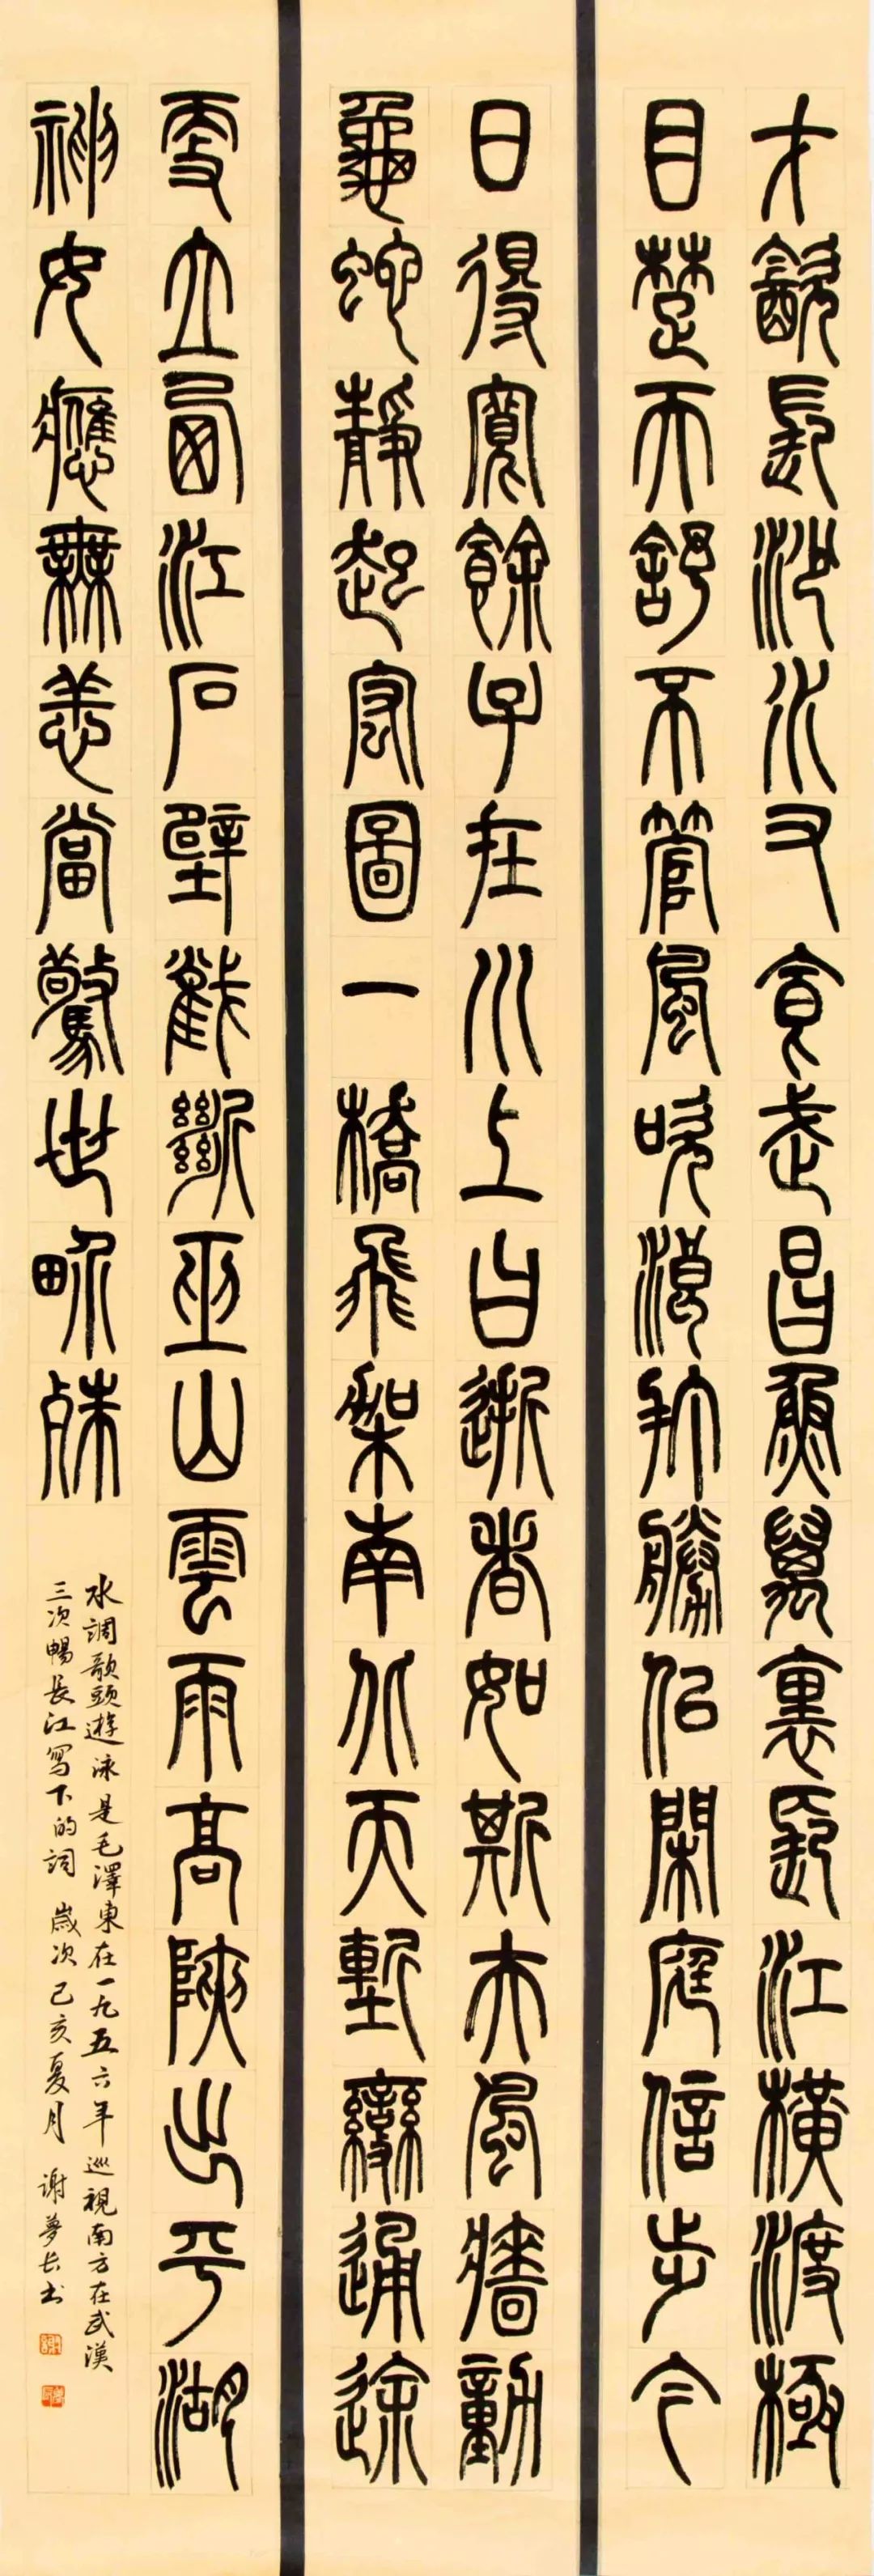 才飲長沙水又食武昌魚萬裏長江橫渡極
目楚天舒不管風吹浪打勝似閑庭信步今
日得寬餘子在川上曰逝者如斯夫風檣動
龜蛇靜起宏圖一橋飛架南北天塹變通途
更立西江石壁截斷巫山雲雨高峽出平湖
神女應無恙當驚世界殊
水調歌頭遊泳是毛澤東在一九五六年巡視南方在武漢
三次暢長江寫下的詞 歲次己亥夏月 谢夢长书